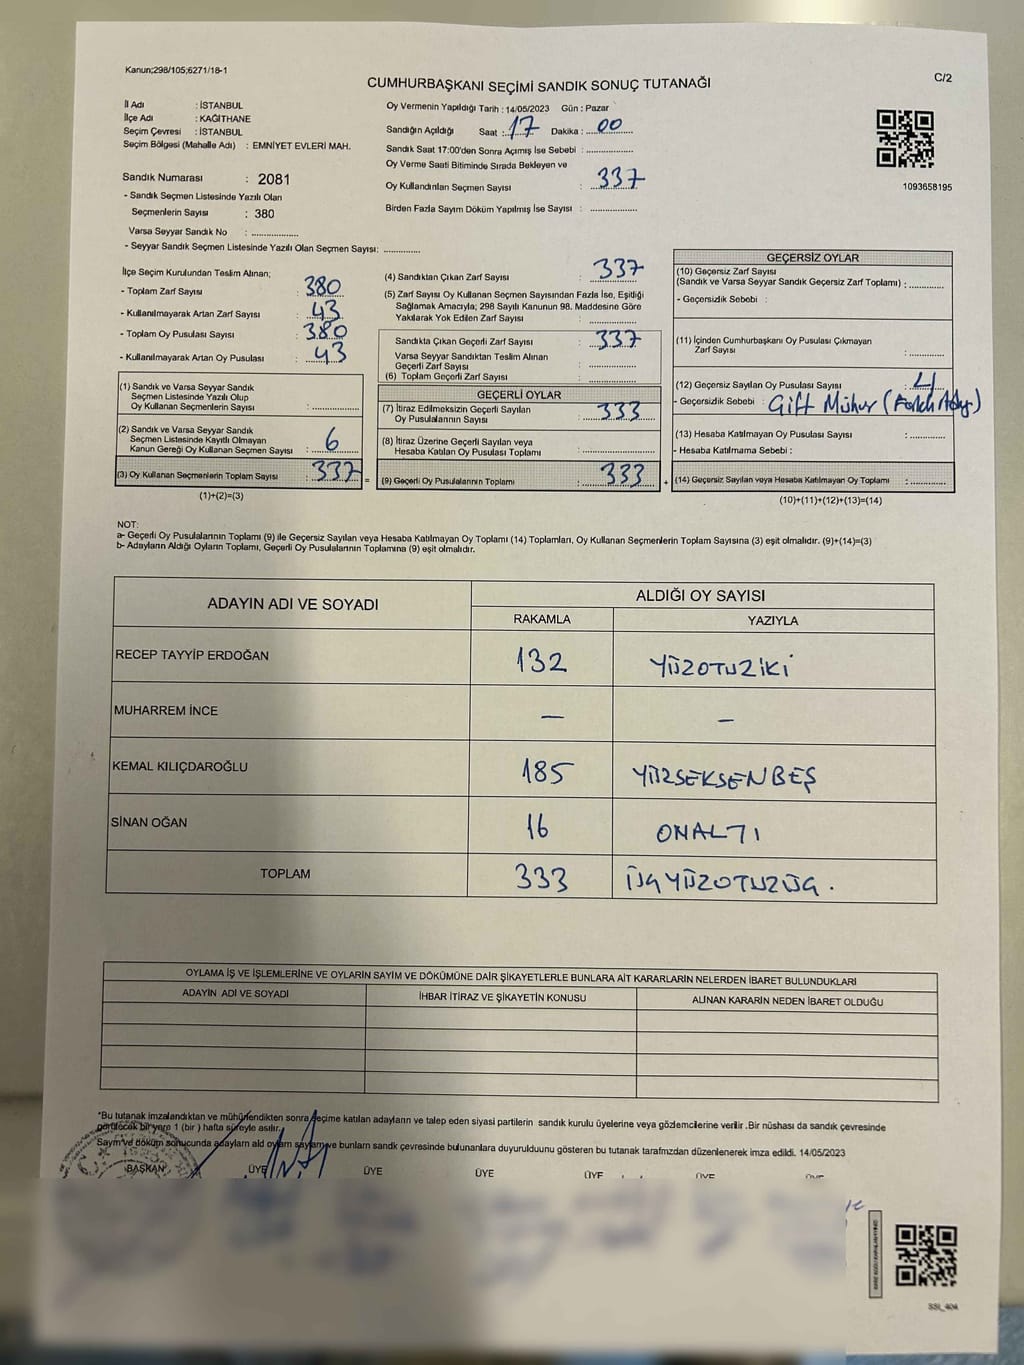 Kanun;298/105;6271/18-1
C/2
CUMHURBAŞKANI SEÇİMİ SANDIK SONUÇ TUTANAĞI
İl Adı : İSTANBUL
İlçe Adı : KAĞITHANE
Seçim Çevresi : İSTANBUL
Seçim Bölgesi (Mahalle Adı) : EMNİYET EVLERİ MAH.
Sandık Numarası : 2081
- Sandık Seçmen Listesinde Yazılı Olan
Seçmenlerin Sayısı : 380
Varsa Seyyar Sandık No : ..............
- Seyyar Sandık Seçmen Listesinde Yazılı Olan Seçmen Sayısı: ............
Oy Vermenin Yapıldığı Tarih : 14/05/2023 Gün : Pazar
Sandığın Açıldığı Saat : 17 Dakika : 00
Sandık Saat 17:00'den Sonra Açımış İse Sebebi : ..............
Oy Verme Saati Bitiminde Sırada Bekleyen ve
Oy Kullandırılan Seçmen Sayısı : 337
Birden Fazla Sayım Döküm Yapılmış İse Sayısı : ..............
1093658195
İlçe Seçim Kurulundan Teslim Alınan;
- Toplam Zarf Sayısı : 380
- Kullanılmayarak Artan Zarf Sayısı : 43
- Toplam Oy Pusulası Sayısı : 380
- Kullanılmayarak Artan Oy Pusulası : 43
(1) Sandık ve Varsa Seyyar Sandık
Seçmen Listesinde Yazılı Olup
Oy Kullanan Seçmenlerin Sayısı : ..............
(2) Sandık ve Varsa Seyyar Sandık
Seçmen Listesinde Kayıtlı Olmayan
Kanun Gereği Oy Kullanan Seçmen Sayısı : 6
(3) Oy Kullanan Seçmenlerin Toplam Sayısı : 337 =
(1)+(2)=(3)
(4) Sandıktan Çıkan Zarf Sayısı : 337
(5) Zarf Sayısı Oy Kullanan Seçmen Sayısından Fazla İse, Eşitliği
Sağlamak Amacıyla; 298 Sayılı Kanunun 98. Maddesine Göre
Yakılarak Yok Edilen Zarf Sayısı : ..............
Sandıkta Çıkan Geçerli Zarf Sayısı : 337
Varsa Seyyar Sandıktan Teslim Alınan
Geçerli Zarf Sayısı : ..............
(6) Toplam Geçerli Zarf Sayısı : ..............
GEÇERLİ OYLAR
(7) İtiraz Edilmeksizin Geçerli Sayılan
Oy Pusulalarının Sayısı : 333
(8) İtiraz Üzerine Geçerli Sayılan veya
Hesaba Katılan Oy Pusulası Toplamı : ..............
(9) Geçerli Oy Pusulalarının Toplamı : 333 +
GEÇERSİZ OYLAR
(10) Geçersiz Zarf Sayısı
(Sandık ve Varsa Seyyar Sandık Geçersiz Zarf Toplamı) : ............
- Geçersizlik Sebebi :
(11) İçinden Cumhurbaşkanı Oy Pusulası Çıkmayan
Zarf Sayısı : ............
(12) Geçersiz Sayılan Oy Pusulası Sayısı : 4
- Geçersizlik Sebebi : Çift Mühür
(13) Hesaba Katılmayan Oy Pusulası Sayısı : ............
- Hesaba Katılmama Sebebi :
(14) Geçersiz Sayılan veya Hesaba Katılmayan Oy Toplamı : ............
(10)+(11)+(12)+(13)=(14)
NOT:
a- Geçerli Oy Pusulalarının Toplamı (9) ile Geçersiz Sayılan veya Hesaba Katılmayan Oy Toplamı (14) Toplamları, Oy Kullanan Seçmenlerin Toplam Sayısına (3) eşit olmalıdır. (9)+(14)=(3)
b- Adayların Aldığı Oyların Toplamı, Geçerli Oy Pusulalarının Toplamına (9) eşit olmalıdır.
ADAYIN ADI VE SOYADI
ALDIĞI OY SAYISI
RAKAMLA YAZIYLA
RECEP TAYYİP ERDOĞAN 132 YÜZOTUZİKİ
MUHARREM İNCE — —
KEMAL KILIÇDAROĞLU 185 YÜZSEKSENBEŞ
SİNAN OĞAN 16 ONALTI
TOPLAM 333 ÜÇYÜZOTUZÜÇ.
OYLAMA İŞ VE İŞLEMLERİNE VE OYLARIN SAYIM VE DÖKÜMÜNE DAİR ŞİKAYETLERLE BUNLARA AİT KARARLARIN NELERDEN İBARET BULUNDUKLARI
ADAYIN ADI VE SOYADI İHBAR İTİRAZ VE ŞİKAYETİN KONUSU ALINAN KARARIN NEDEN İBARET OLDUĞU
*Bu tutanak imzalandıktan ve mühürlendikten sonra seçime katılan adayların ve talep eden siyasi partilerin sandık kurulu üyelerine veya gözlemcilerine verilir .Bir nüshası da sandık çevresinde
görülecek bir yere 1 (bir ) hafta süreyle asılır.
Sayım ve döküm sonucunda adayların aldığı oyların sayısı ve bunların sandık çevresinde bulunanlara duyurulduğunu gösteren bu tutanak tarafımızdan düzenlenerek imza edildi. 14/05/2023
BAŞKAN ÜYE ÜYE ÜYE ÜYE ÜYE
SSİ_404